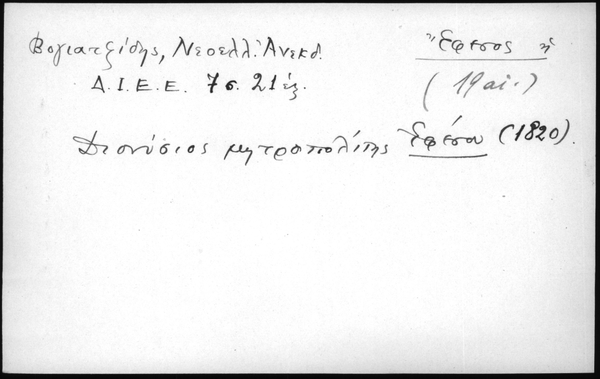 Βογιατζίδης, Νεοελλ. Ἀνεκδ.
Δ.Ι.Ε.Ε. 7 σ. 21 ἑξ.
Ἔφεσος ἡ
(19 αἰ.)
Διονύσιος μητροπολίτης Ἐφέσου (1820).